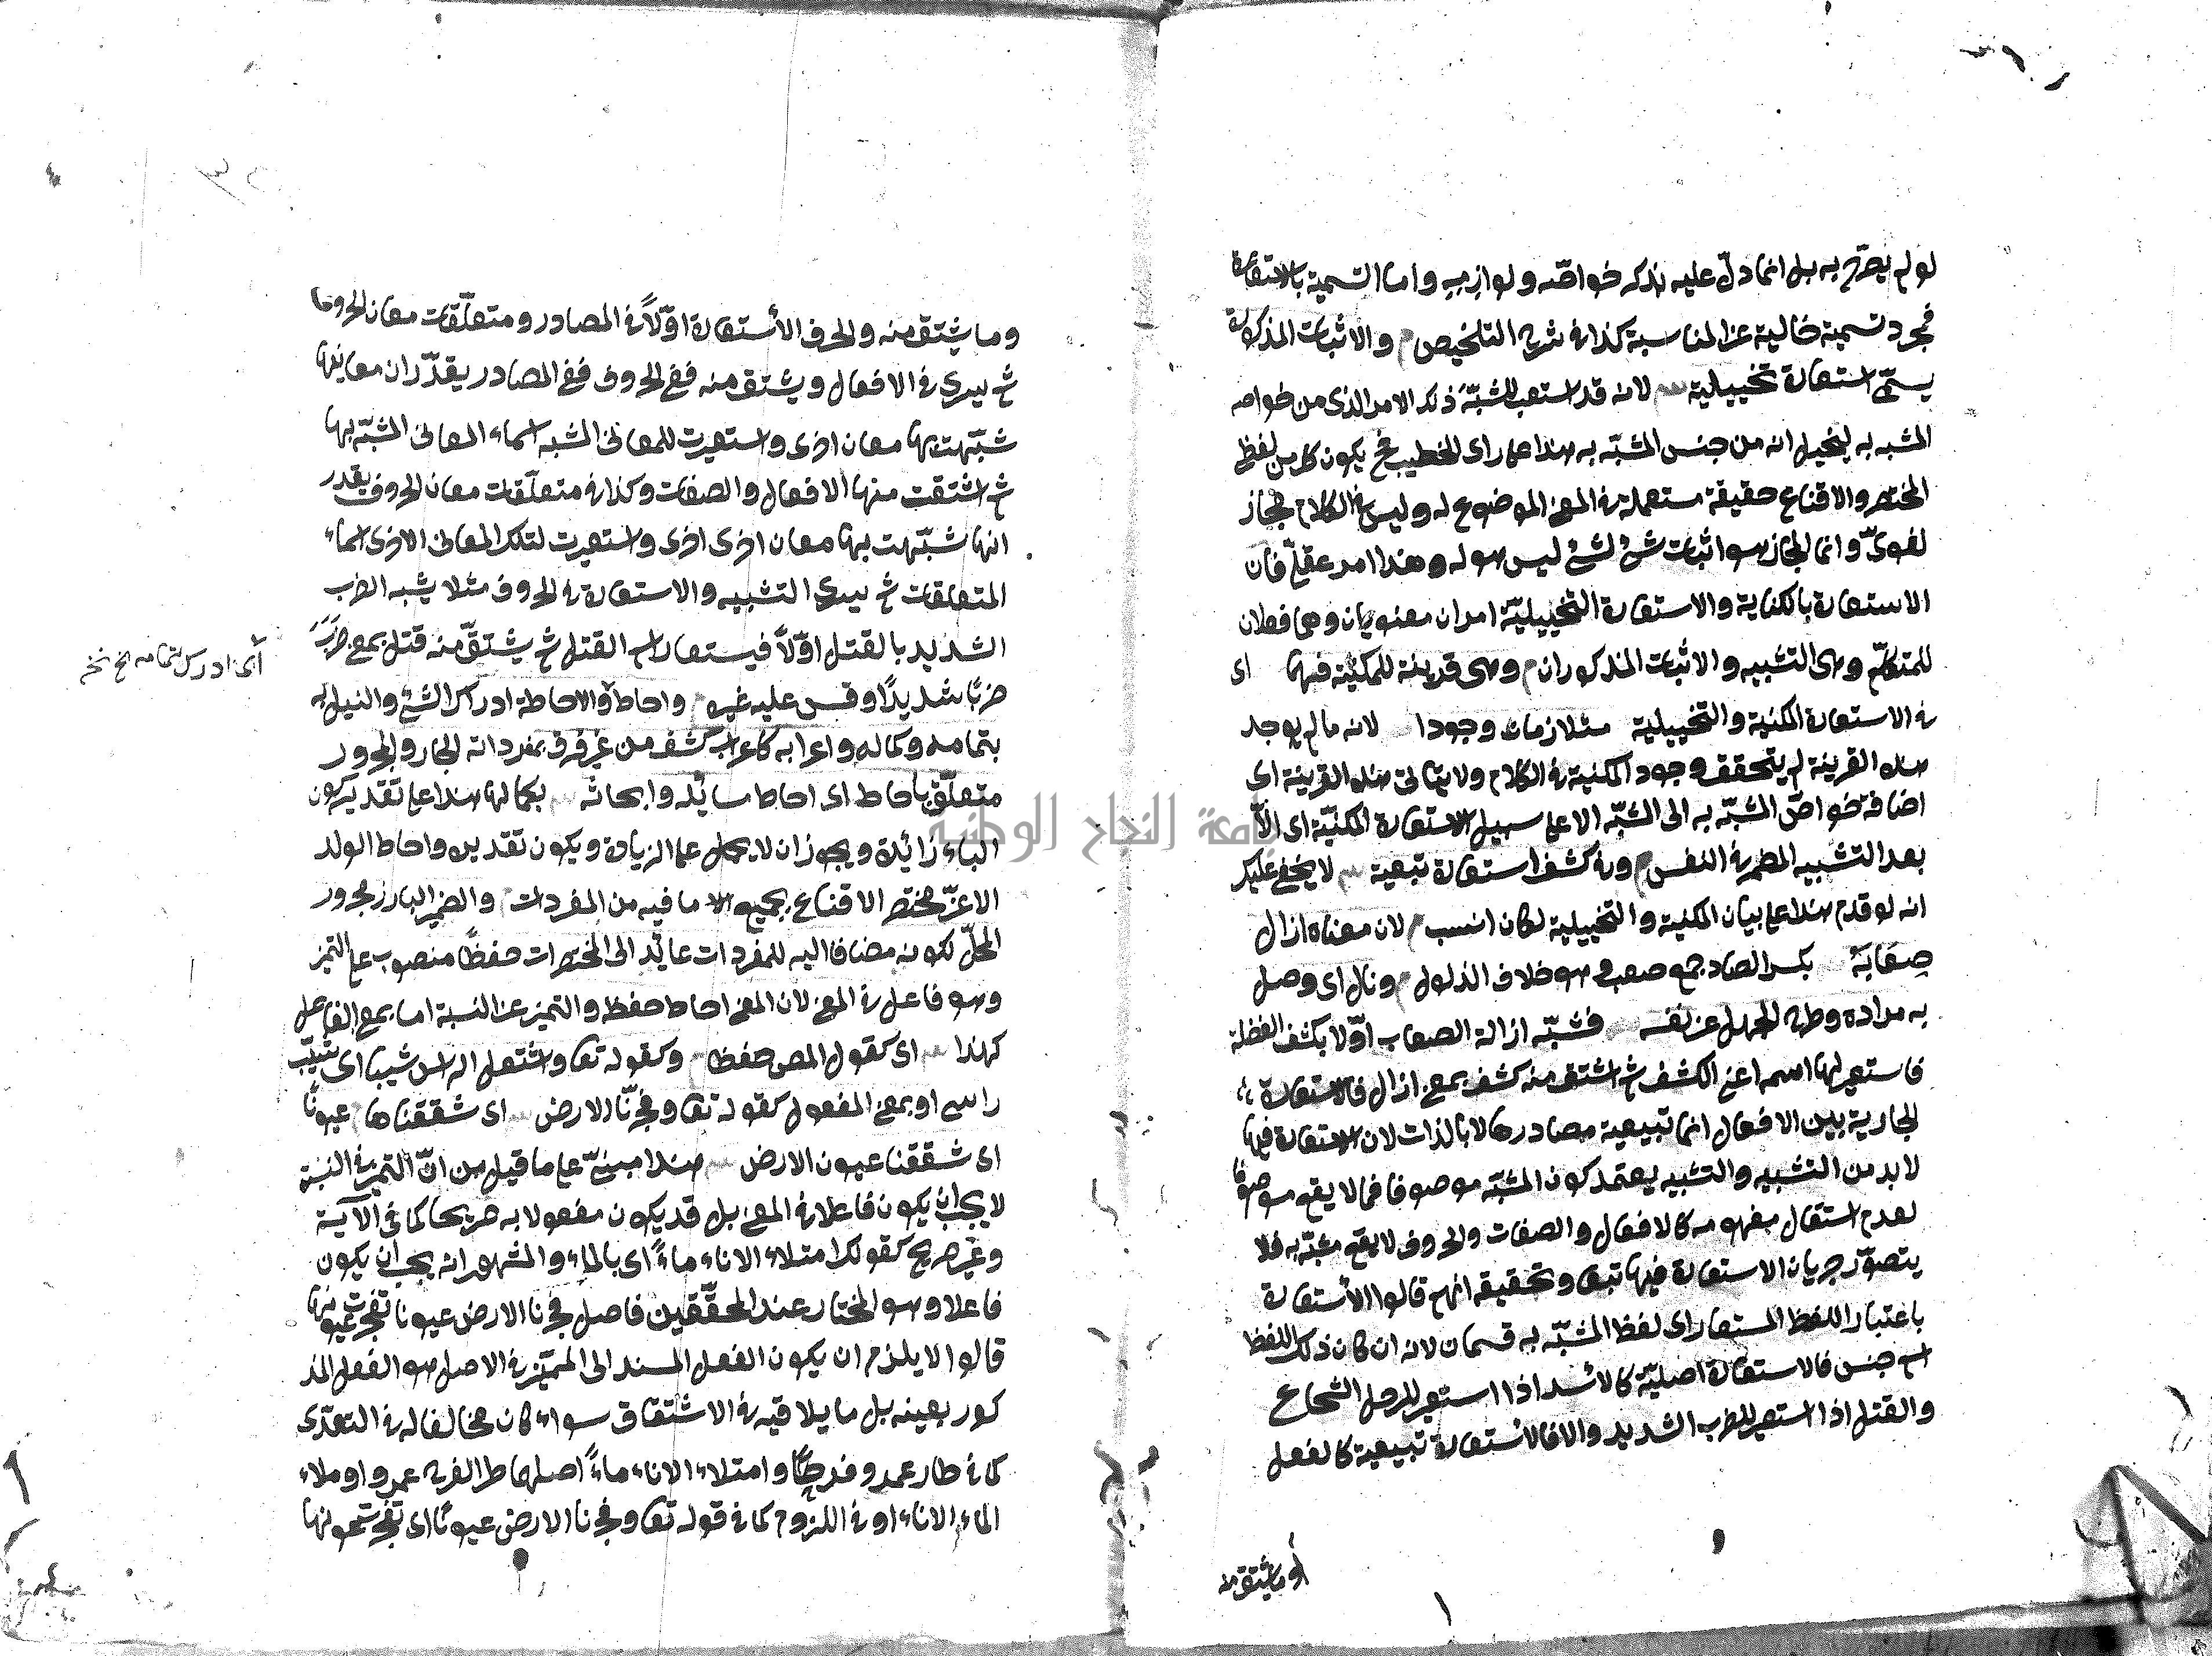 لو لم يصرّح به بل انما دلّ عليه بذكر خواصّه ولوازمه واما التسمية بالاستعارة
فمجرد تسمية خالية عن المناسبة كذا في شرح التلخيص والاثبات المذكورة
يسمّى استعارة تخييلية لانه قد استعير للمشبّه ذلك الامر الذى من خواص
المشبه به ليخيل انه من جنس المشبّه به هذا على راى الخطيب فح يكون كل من لفظ
المختصر والاقناع حقيقة مستعملة في المعنى الموضوع له وليس في الكلام مجاز
لغوىّ وانما المجاز هو اثبات شئ لشئ ليس هو له وهذا امر عقلىّ فان
الاستعارة بالكناية والاستعارة التخييليّة امران معنويان وهما فعلان
للمتكلّم وهى التشبيه والاثبات المذكوران وهى قرينة للمكنيّة فهما اى
في الاستعارة المكنية والتخييلية متلازمان وجودا لانه ما لم يوجد
هذه القرينة لم يتحقق وجود المكنية في الكلام ولا يتاتى هذه القرينة اى
اضافة خواصّ المشبّه به الى المشبّه الا على سبيل الاستعارة المكنيّة اى الّا
بعد التشبيه المضمر في النفس وفي كشف استعارة تبعية لا يخفى عليك
انه لو قدم هذا على بيان المكنية والتخييلية لكان انسب لان معناه ازال
صِعَابَهُ بكسر الصاد جمع صعب وهو خلاف الذلول ونال اى وصل
به مراده وطرح الجهل عن نفسه فشبّه ازالة الصعاب اوّلا بكشف الفضلة
فاستعير لها اسمه اعنى الكشف ثم اشتق منه كشف بمعنى ازال فالاستعارة
الجارية بين الافعال انما تبيعية مصادرها لا بالذات لان الاستعارة فيها
لا بد من التشبيه والتشبيه يعتمد كون المشبّه موصوفا فما لا يقع موصوفا
لعدم استقال مفهومه كالافعال والصفات والحروف لا يقع مشبّه به فلا
يتصوّر جريان الاستعارة فيها تبعا وتحقيقه انهم قالوا الأستعارة
باعتبار اللفظ المستعار اى لفظ المشبّه به قسمان لانه ان كان ذلك اللفظ
اسم جنس فالاستعارة اصليّة كالاسد اذا استعير للرجل الشجاع
والقتل اذا استعير للضرب الشديد والا فالاستعارة تبيعية كالفعل
أو ما يشتق منه
وما يشتق منه والحرف الأستعارة اوّلاً في المصادر ومتعلّقات معانى الحروف
ثم يسرى في الافعال ويشتق منه ففى الحروف ففى المصادر يقدّر ان معانيها
شبّهت بها معان اخرى واستعيرت للمعانى الشبه اسماء المعانى المشبّه بها
ثم اشتقت منها الافعال والصفات وكذا في متعلّقات معانى الحروف يقدر
انها شبّهت بها معان اخرى اخرى واستعيرت لتلك المعانى الاخرى اسماء
المتعلقات ثم يسرى التشبيه والاستعارة في الحروف مثلا يشبه الضرب
الشديد بالقتل اوّلاً فيستعار اسم القتل ثم يشتقّ منه قتل بمعنى ضَرَبَ
ضربًا شديدًا وقس عليه غيره واحاط والاحاطة ادراك الشئ والنيل به
أى ادراك بتمامه الخ نخ
بتمامه وكماله واعرابه كاعراب كشف من غير فرق بمفرداته الجار والمجرور
متعلّق باحاط اى احاط مسائله وابحاثه بكمالها هذا على تقدير كون
الباء زائدة ويجوز ان لا يحمل على الزيادة ويكون تقديره واحاط الولد
الاعزّ مختصر الاقناع بجميع ما فيه من المفردات والضمير البارز مجرور
المحلّ لكونه مضافا اليه للمفردات عائد الى المختصرات حفظًا منصوب على التميز
وهو فاعل في المعنى لان المعنى احاط حفظه والتميز عن النسبة اما بمعنى الفاعل
كهذا اى كقول المص حفظا وكقوله تعا واشتعل الراس شيبا اى شيب
راسى او بمعنى المفعول كقوله تعا وفجرنّا الارض اى شققناها عيونًا
اى شققنا عيون الارض هذا مبنىّ على ما قيل من انّ التميز في النسبة
لا يجب ان يكون فاعلا في المعنى بل قد يكون مفعولا به صريحا كما فى الآية
وغير صريح كقولك امتلاء الاناء ماءً اى بالماء والمشهور انه يجب ان يكون
فاعلا وهو المختار عند المحقّقين فاصل فجرنا الارض عيونا تفجرت عيونها
قالوا لا يلزم ان يكون الفعل المسند الى المميّز في الاصل هو الفعل المذ
كور بعينه بل ما يلاقيه في الاشتقاق سواء كان مخالفا له في التعدّى
كما في طار عمرو فرحًا وامتلاء الاناء ماءً اصلهما طير الفرح عمروا وملاء
الماء الاناء او في اللزوم كما في قوله تعا وفجرنا الارض عيونًا اى تفجرت عيونها
جامعة النجاح الوطنية